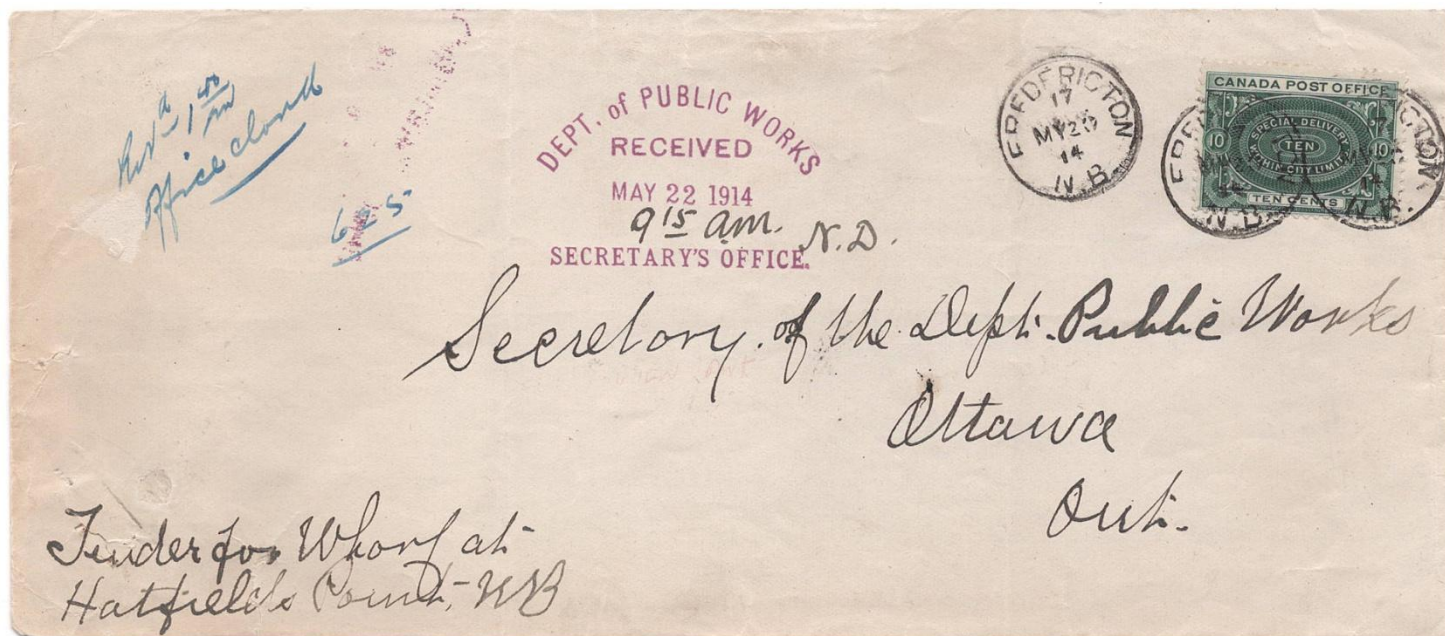 Office closed
625
DEPT. of PUBLIC WORKS
RECEIVED
MAY 22 1914
9 15 am. N.D.
SECRETARY'S OFFICE.
FREDERICTON
17
MY 20
14
N.B.
CANADA POST OFFICE
10 SPECIAL DELIVERY 10
TEN
WITHIN CITY LIMITS
TEN CENTS
FREDERICTON
14
N.B.
FREDERICTON
14
N.B.
Secretary of the Dept. Public Works
Ottawa
Ont.
Tender for Wharf at
Hatfields Point, NB